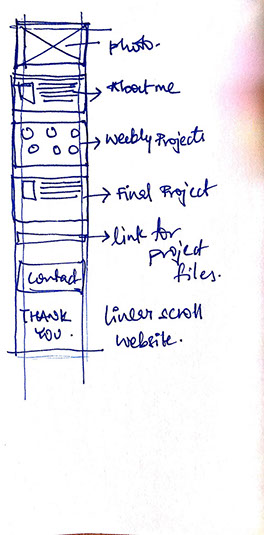 photo.
About me
Weekly Projects
Final Project
link for
project
files.
Contact
THANK
YOU.
linear scroll
website.